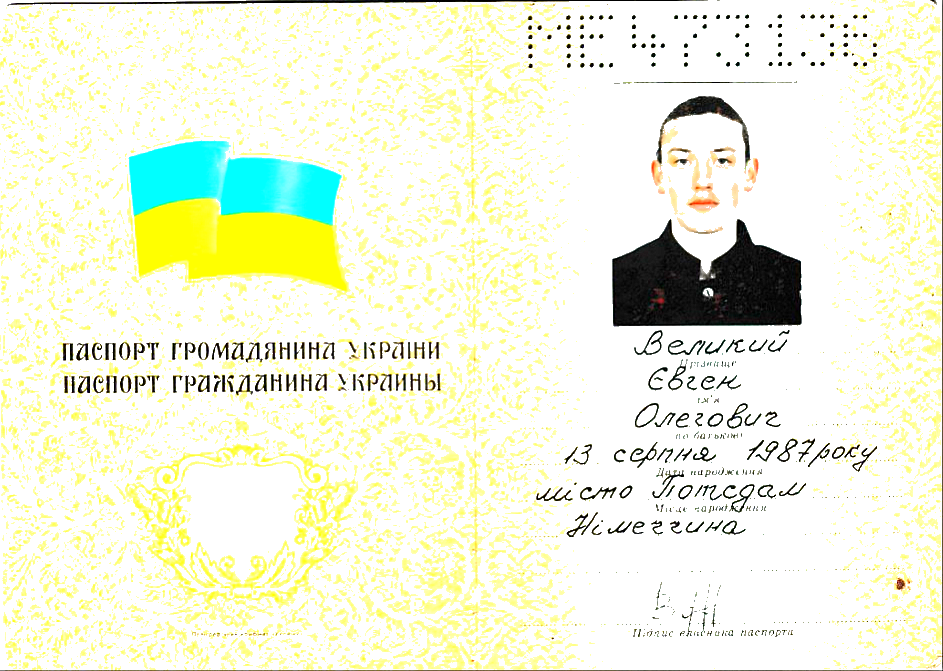 ПАСПОРТ ГРОМАДЯНИНА УКРАЇНИ
ПАСПОРТ ГРАЖДАНИНА УКРАИНЫ
МЕ473136
Великий
Прізвище
Євген
Ім'я
Олегович
по батькові
13 серпня 1987 року
Дата народження
місто Потсдам
Місце народження
Німеччина
Підпис власника паспорта